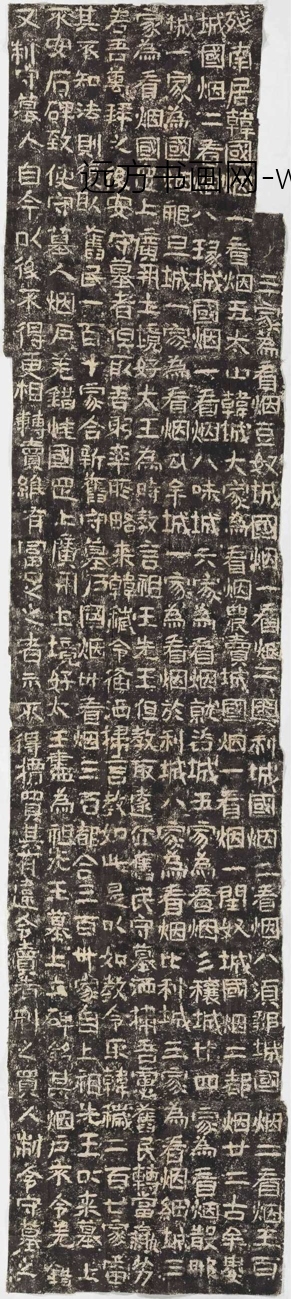 三家為看烟豆奴城國烟一看烟二奧利城國烟二看烟八須鄒城國烟二看烟五百
殘南居韓國烟一看烟五大山韓城六家為看烟農賣城國烟一看烟一閏奴城國烟二都烟廿二古牟婁
城國烟二看烟八瑑城國烟一看烟八味城六家為看烟就咨城五家為看烟彡穰城廿四家為看烟散那
城一家為國烟那旦城一家為看烟勾牟城一家為看烟於利城八家為看烟比利城三家為看烟細城三
家為看烟國罡上廣開土境好太王存時教言祖王先王但教取遠近舊民守墓洒掃吾慮舊民轉當羸劣
若吾萬年之後安守墓者但取吾躬率所略來韓穢令備洒掃言教如此是以如教令取韓穢二百廿家慮
其不知法則取舊民一百十家合新舊守墓戶國烟卅看烟三百都合三百卅家自上祖先王以來墓上
不安石碑致使守墓人烟戶差錯唯國罡上廣開土境好太王盡為祖先王墓上立碑銘其烟戶不令差錯
又制守墓人自今以後不得更相轉賣雖有富足之者亦不得擅買其有違令賣者刑之買人制令守墓之
远方书画网-w